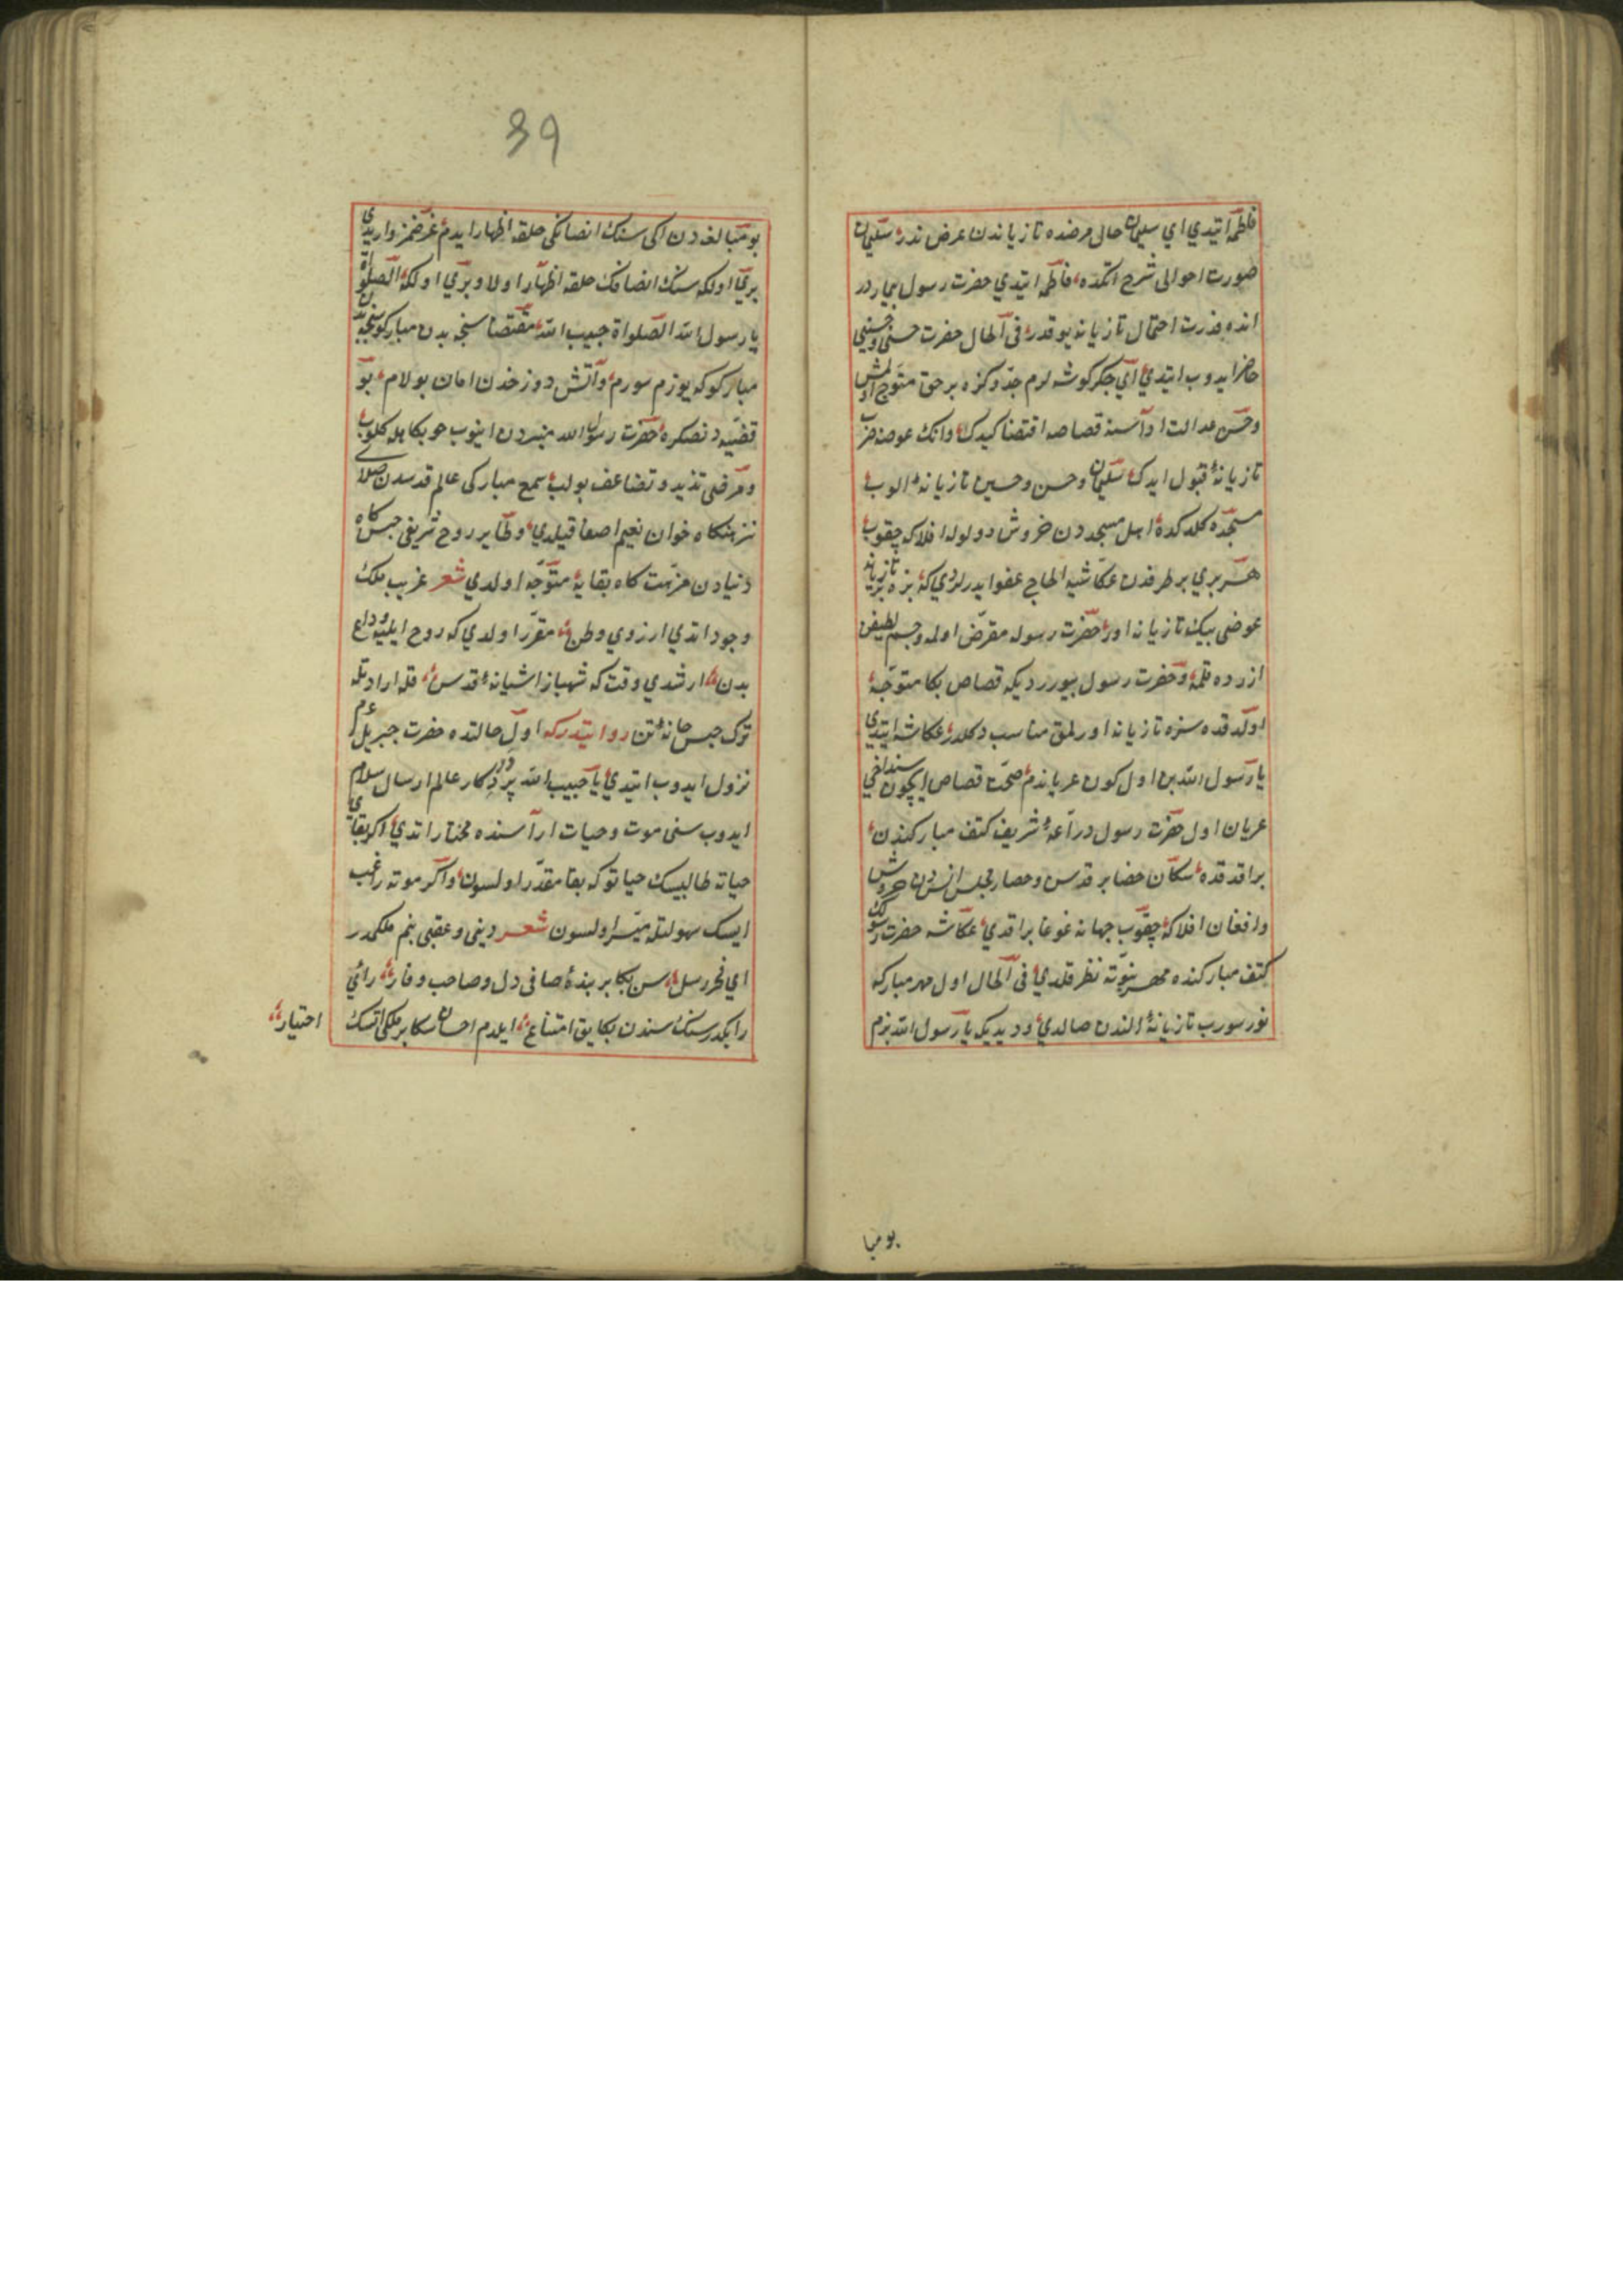 فاطمه ایتدي اي سلمان حال مرضده تازیاندن غرض ندر سلمان
صورت احوالی شرح اتمکده فاطمه ایتدي حضرت رسول بیماردر
انده قدرت احتمال تازیانه یوقدر فی الحال حضرت حسنی وحسینی
حاضر ایدوب ایتدي اي جکر کوشه لرم جد وکزه بر حق متوجه اولمش
وحسن عدالت اداسنه قصاصه اقتضا وانك عوضنه ضرب
تازیانهٔ قبول ایدك سلمان وحسن وحسین تازیانهٔ الوب
مسجده کلدکده اهل مسجددن خروش و ولوله افلاکه چقوب
هر بري بر طرفدن عکاشیه الحاح عفو ایدرلردي که بزه تازیانه
عوضی بیك تازیانه اور حضرت رسوله متعرض اولمه وجسم لطیفن
ازرده قلمه وحضرت رسول بیورردیکه قصاص بکا متوجه
اولدقده سزه تازیانه اورلمق مناسب دکلدر عکاشه ایتدي
یا رسول الله بن اول کون عریاندم صحت قصاص ایچون سنداخي
عریان اول حضرت رسول دراعهٔ شریف کتف مبارکندن
براقدقده سکان حضایر قدس وحصار مجلس انسدن خروش
وافغان افلاکه چقوب جهانه غوغا براقدي عکاشه حضرت رسولك
کتف مبارکنده مهر نبوته نظر قلدي فی الحال اول مهر مبارکه
یوز سورب تازیانهٔ الندن صالدي ودیدیکه یا رسول الله بنم
بومبا
39
بو مبالغه دن اکی سنك انصافکی خلقه اظهار ایدم غرضمز واریدي
بري اولکه سنك انصافك خلقه اظهار اولا وبري اولکه الصلواة
یا رسول الله الصلواة حبیب الله مقتضاسنجه بدن مبارکوکه
مبارکوکه یوزم سورم وآتش دوزخدن امان بولام بو
قضیه دنصکره حضرت رسول الله منبردن اینوب کلوب
ومرضی تزید وتضاعف بولب سمع مبارکی عالم قدسدن صلاے
نزهتکاه خوان نعیم اصغا قیلدي وطایر روح شریفی حبسکاه
دنیادن عزیمت کاه بقایه متوجه اولدي شعر غریب ملك
وجود اتدي ارزوي وطن مقرر اولدي که روح ایلیه وداع
بدن ارشدي وقت که شهباز اشیانهٔ قدس قله ارادتله
ترك حبس خانهٔ تن روایتدر که اول حالتده حضرت جبریل عم
نزول ایدوب ایتدي یا حبیب الله پروردکار عالم ارسال سلام
ایدوب سنی موت وحیات اراسنده مختار اتدي اکر بقاي
حیاته طالبیسك حیاتوکه بقا مقدر اولسون واکر موته راغب
ایسك سهولتله میسر اولسون شعر دینی وعقبی بنم ملکمدر
اي فخر رسل سن بکا بر بندهٔ صافی دل وصاحب وقار رأي
رایکدر سنك سندن بکا یوق امتناع ایلدم احسان سکا بر ملکی اتسك
اختیار